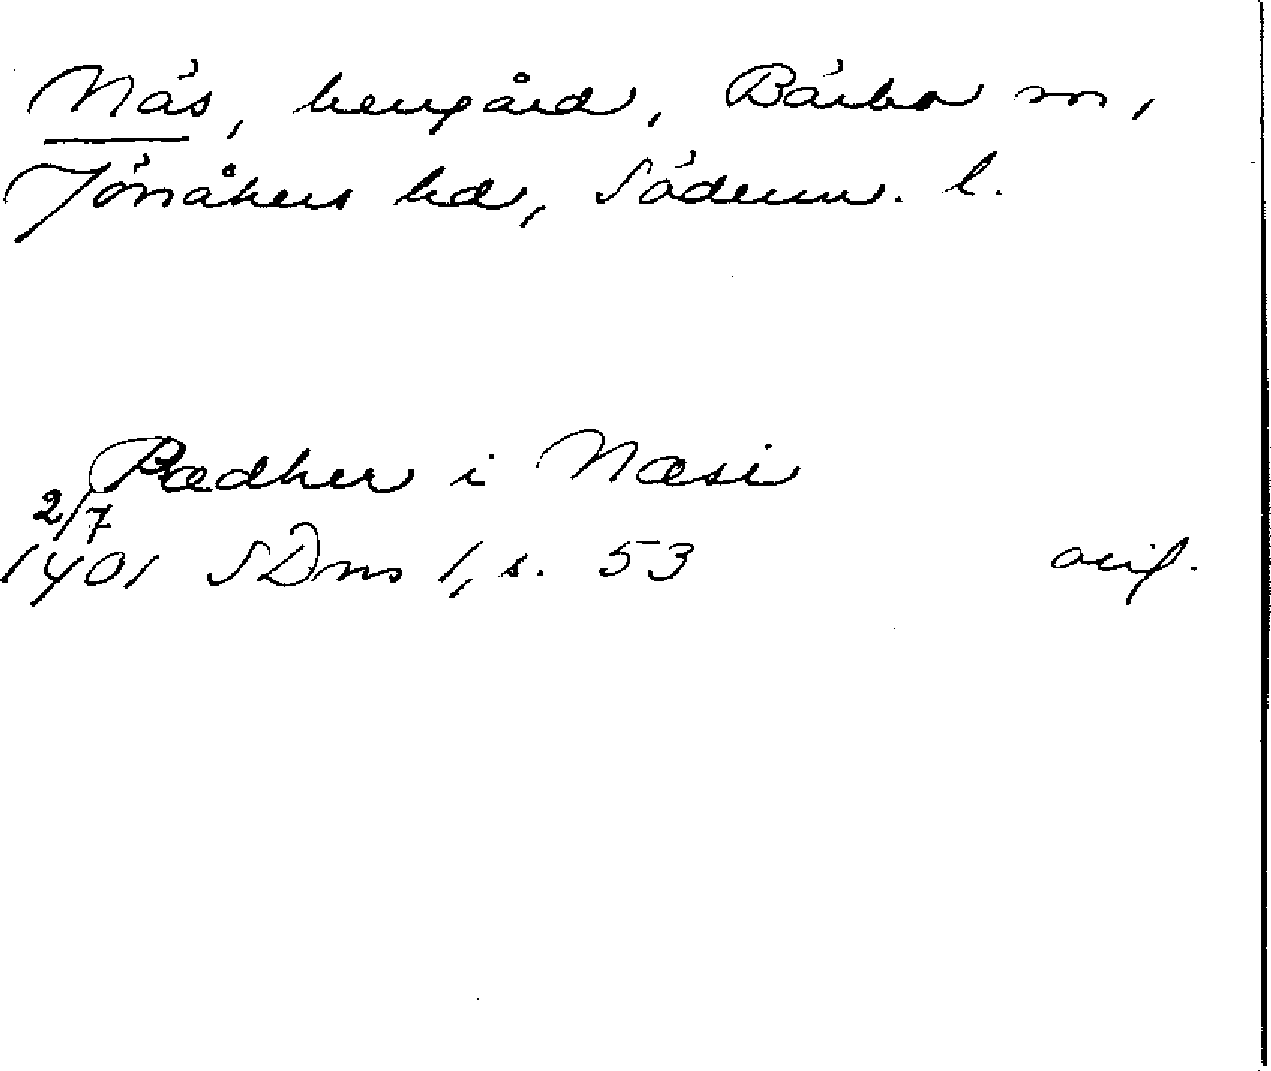 Näs, herrgård, Bärbo sn,
Jönåkers hd, Söderm. l.
Pædher i Næsi
2/7
1401 SDns 1, s. 53 orig.